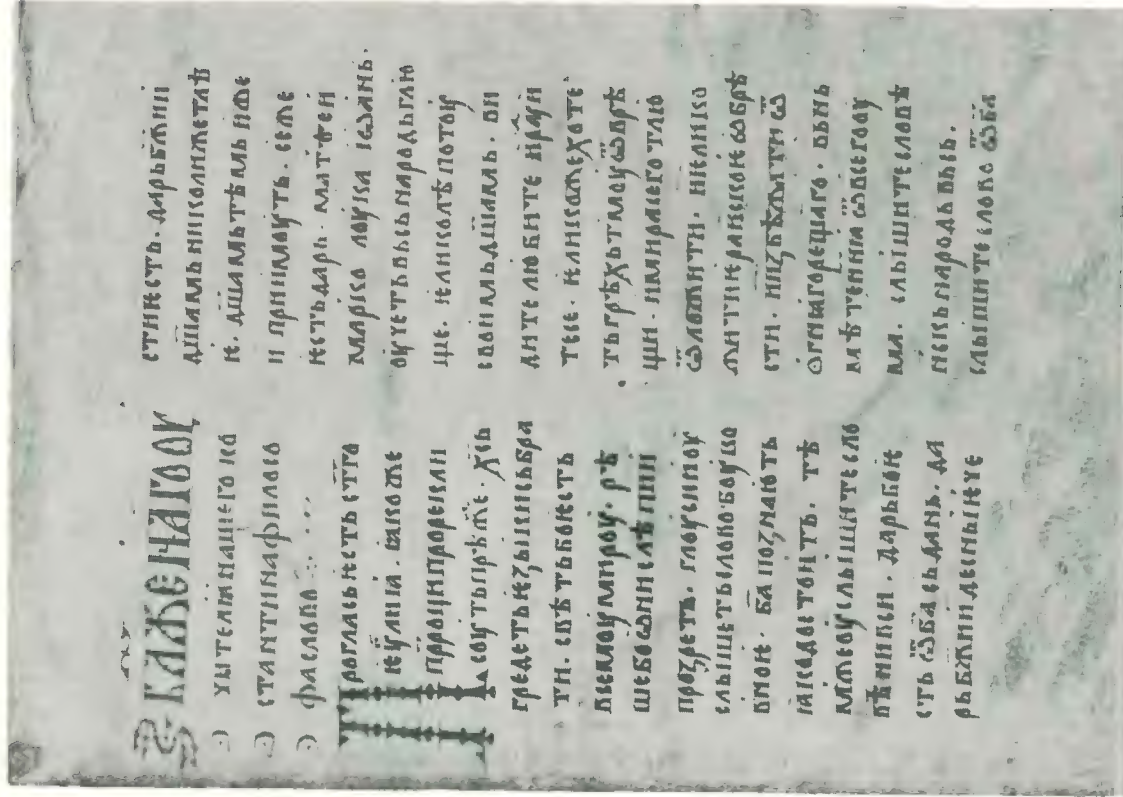 Блаженаго оу
чытелꙗ нашего ко
стантина филосо
фа слово :· ....
Прогласьѥстьст҃го
ѥу҃лиꙗ · ꙗкоже
пр҃роциипрорекли
соутьпрѣж҃е · х҃сь
гредетьѥзыкисьбра
ти · свѣтьбоѥсть
вьсемоумироу · рѣ
шебоѡнислѣпии
прозреть · глоусиимоу
слышетьсловобоукь
вноѥ · б҃а познають
ꙗкодостоить · тѣ
мжеоуслышитесло
вѣнивьси · дарьбоѥ
сть ѿб҃асьдань · да
рьбжиидесныѥче
стиѥсть · дарьбжии
дш҃амьниколижетлѣ
ѥ · дш҃амьтѣмь иже
и приимоуть · сеже
ѥстьдарь · матѳеи
марко лоука іѡаннь ·
оучетьвьсьнародьглю
ще · ѥликолѣпотоу
своимьдш҃амь · ви
дите любите
тесе · ѥликожехоте
тьгрѣхьтмоуѿврѣ
щи · имирасеготлю
ѿложити · иѥлико
житиѥраискоѥѡбрѣ
сти · иизбѣжатиѿ
огнꙗгорещаго · вьнь
мѣтениꙗѿвсегооу
ма · слышитесловѣ
несьнародьвьсь ·
слышитеслово ѿб҃а